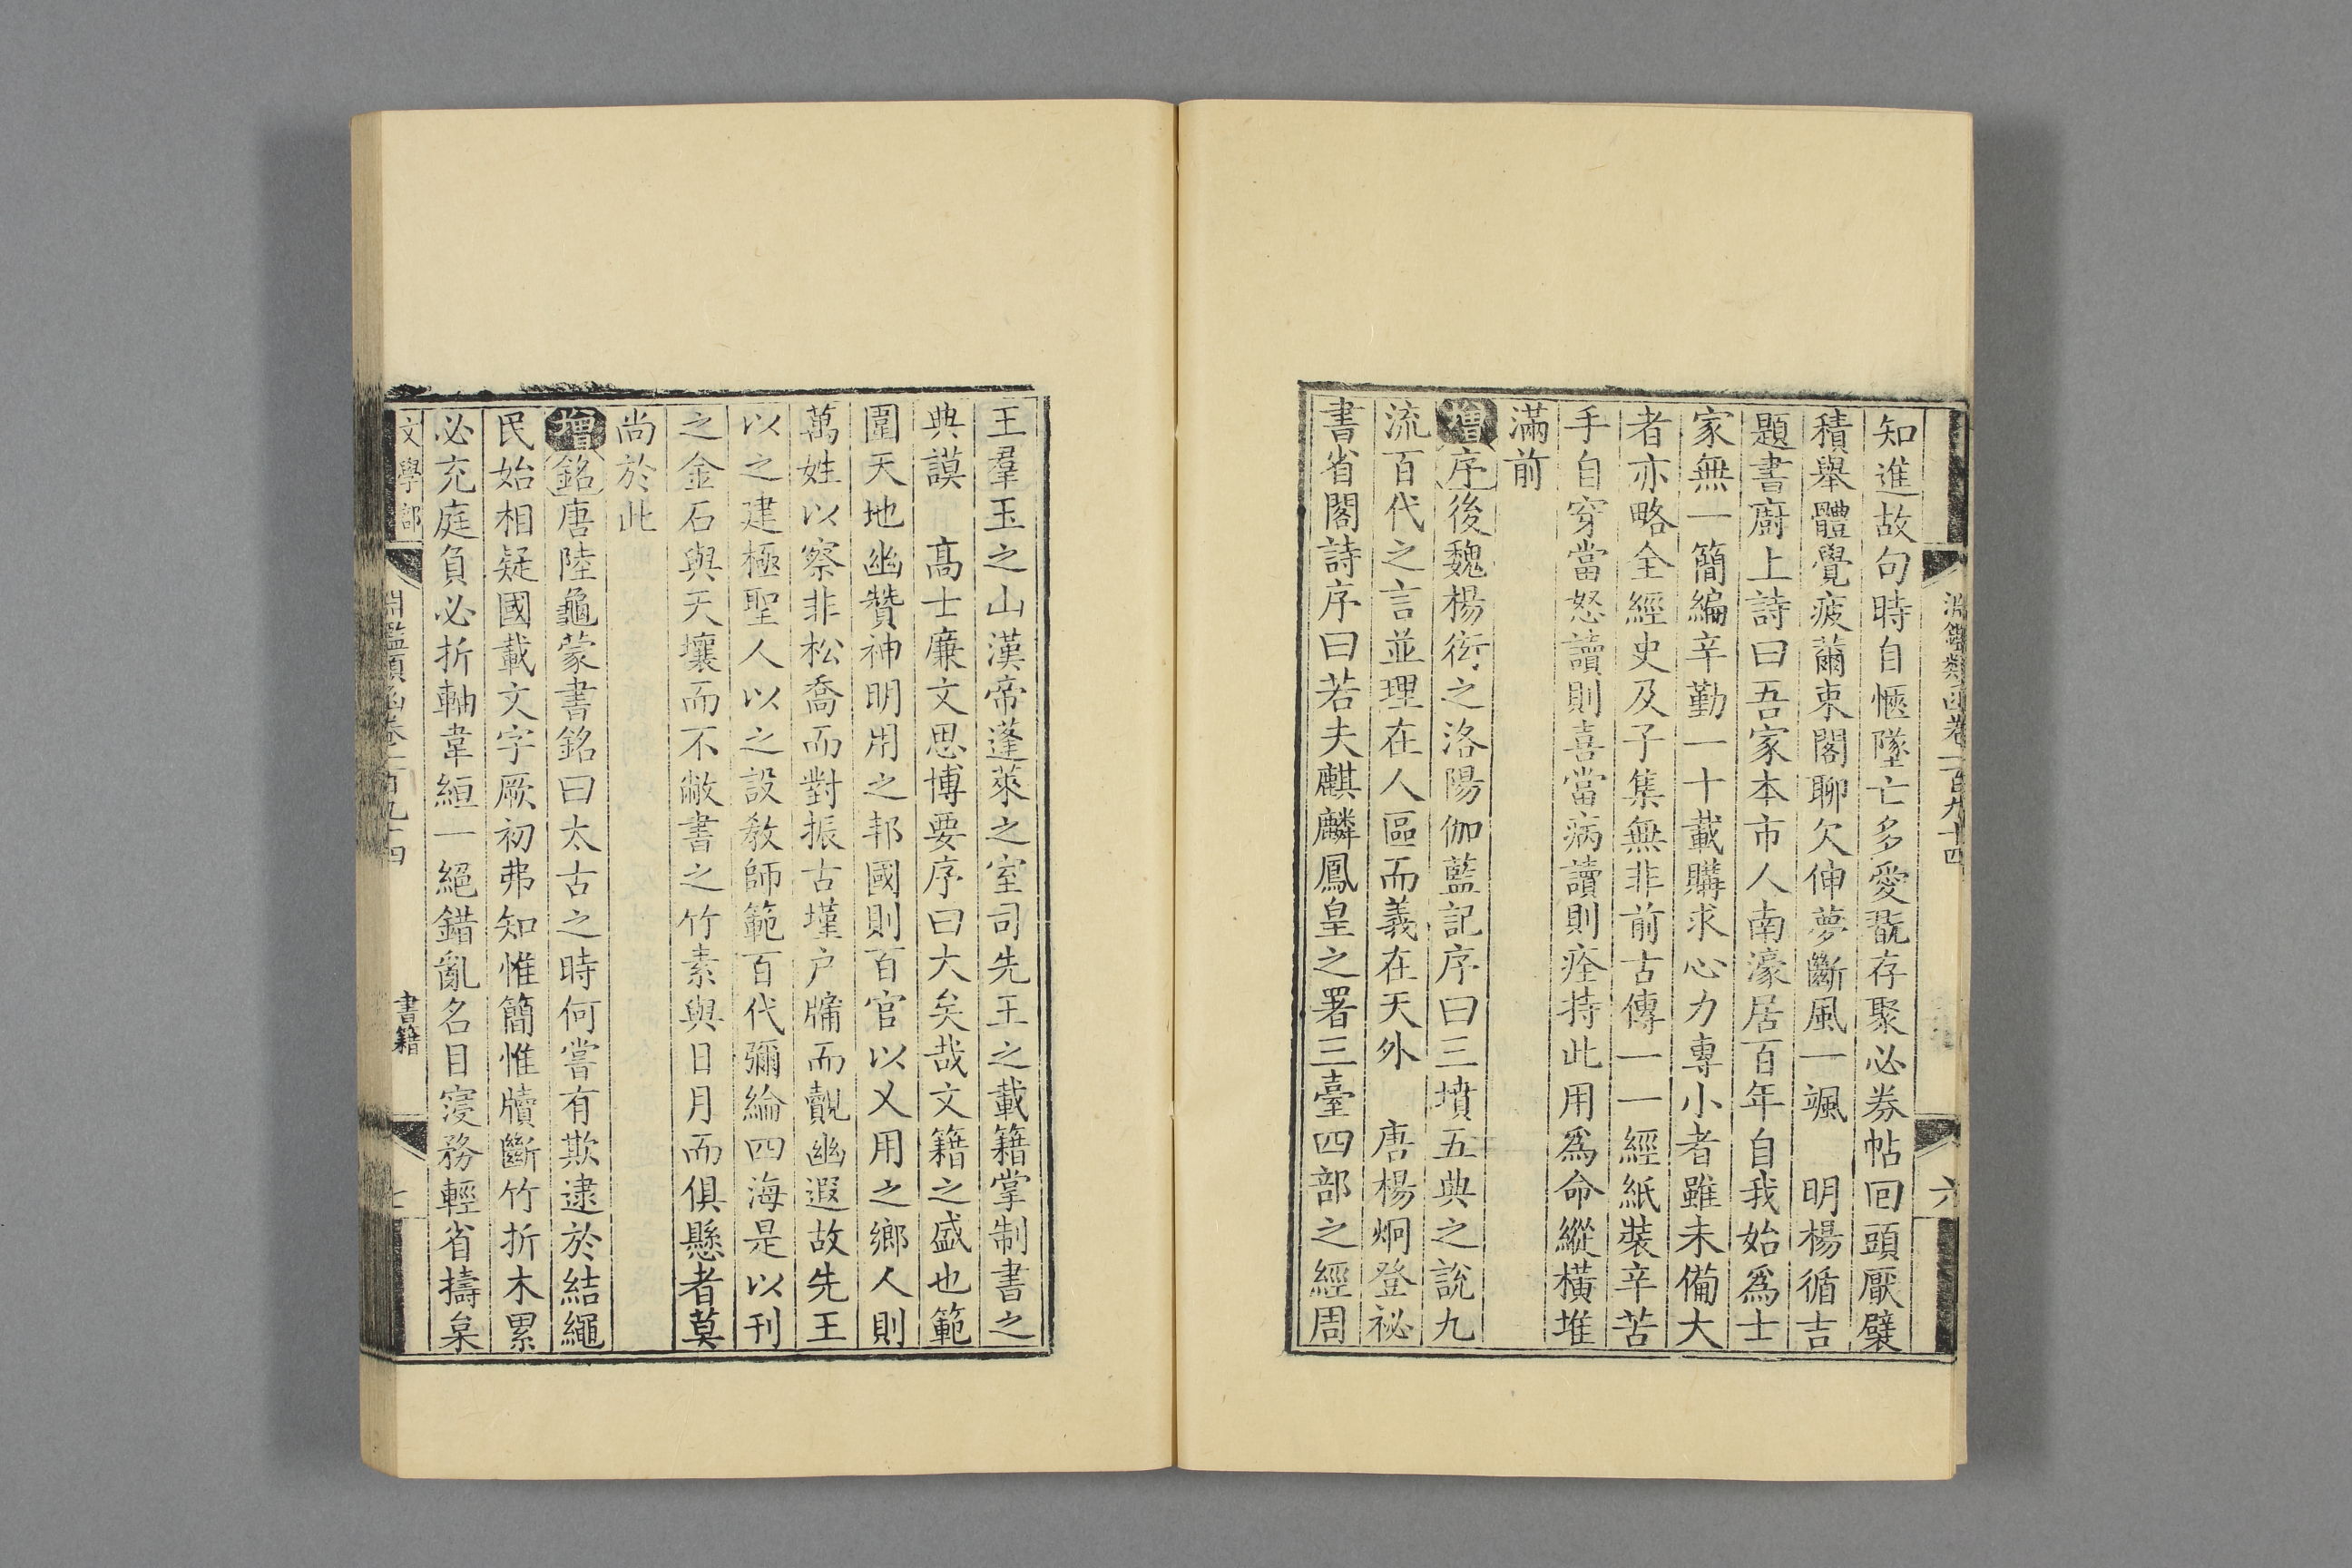 淵鑑類函卷一百九十四
六
知進故句時自愜墜亡多愛翫存聚必券帖囘頭厭襞
積舉體覺疲薾束閣聊欠伸夢斷風一颯　明楊循吉
題書廚上詩曰吾家本市人南濠居百年自我始爲士
家無一簡編辛勤一十載購求心力專小者雖未備大
者亦略全經史及子集無非前古傳一一經紙裝辛苦
手自穿當怒讀則喜當病讀則痊持此用爲命縱橫堆
滿前
增序後魏楊衒之洛陽伽藍記序曰三墳五典之說九
流百代之言並理在人區而義在天外　唐楊炯登祕
書省閣詩序曰若夫麒麟鳳皇之署三臺四部之經周
王羣玉之山漢帝蓬萊之室司先王之載籍掌制書之
典謨　高士廉文思博要序曰大矣哉文籍之盛也範
圍天地幽贊神明用之邦國則百官以乂用之鄉人則
萬姓以察非松喬而對振古墐户牖而覿幽遐故先王
以之建極聖人以之設教師範百代彌綸四海是以刊
之金石與天壤而不敝書之竹素與日月而俱懸者莫
尚於此
增銘唐陸龜蒙書銘曰太古之時何嘗有欺逮於結繩
民始相疑國載文字厥初弗知惟簡惟牘斷竹折木累
必充庭負必折軸韋絙一絕錯亂名目寖務輕省擣枲
文學部
淵鑑類函卷一百九十四
書籍
七